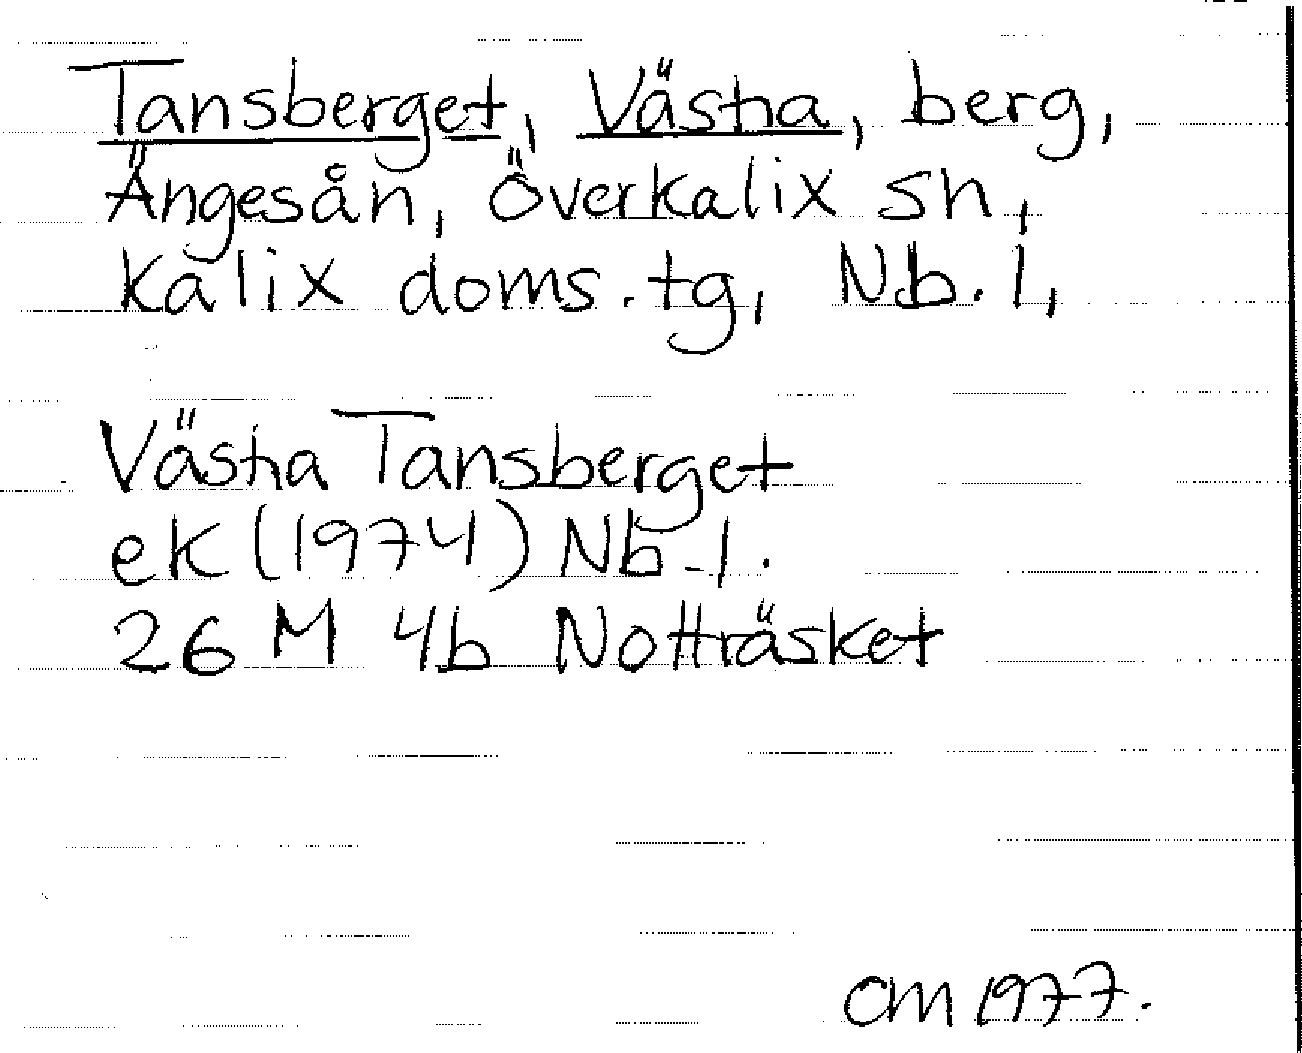 Tansberget, Västra, berg,
Ängesån, Överkalix sn,
Kalix doms.tg, Nb. l,
Västra Tansberget
ek (1974) Nb l.
26 M 4b Notträsket
OM 1977.